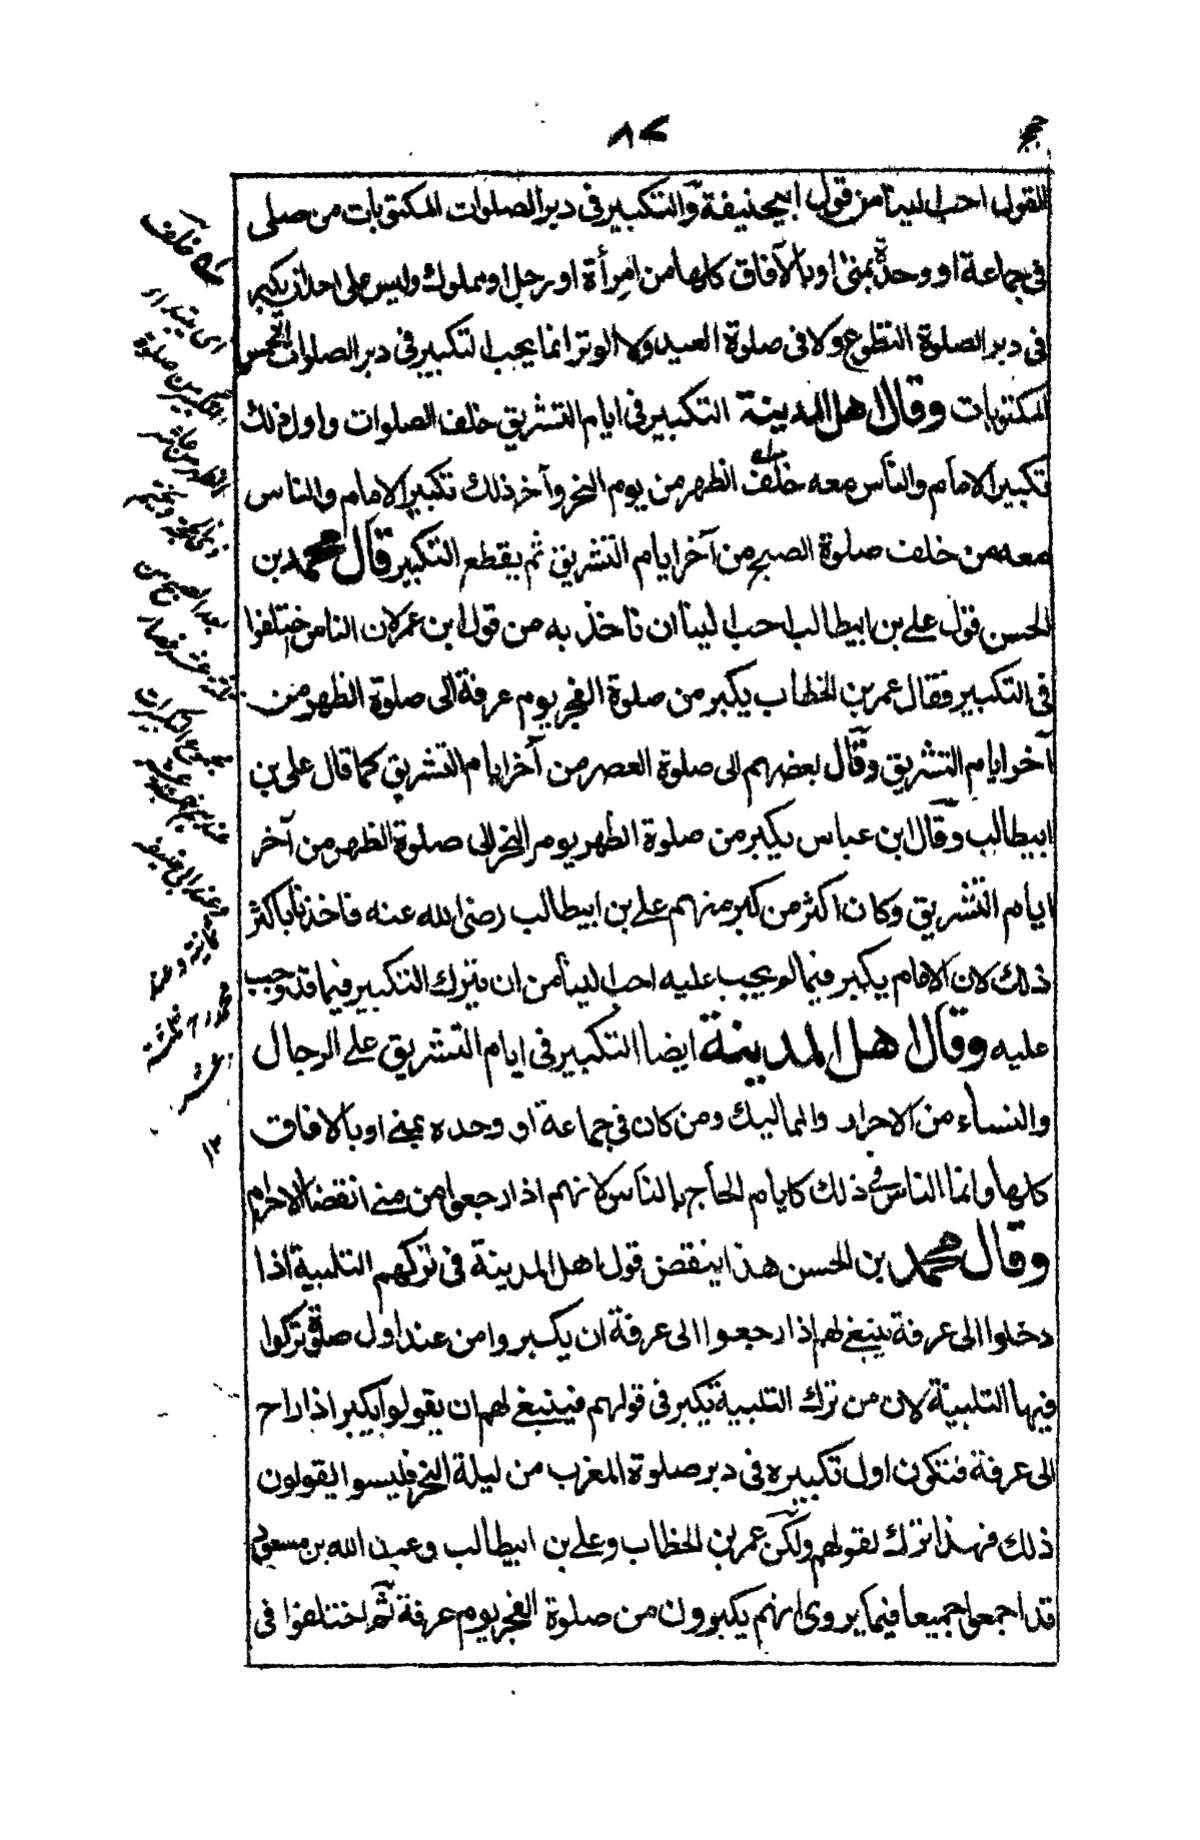 حجج
٨٧
القول احب الينا من قول ابيحنيفة والتكبير في دبر الصلوات المكتوبات من صلى
في جماعة او وحدة بمنى او بالآفاق كلها من امرأة او رجل او مملوك وليس على احد ان يكبر
في دبر الصلوة التطوع ولا في صلوة العيد ولا الوتر انما يجب التكبير في دبر الصلوات الخمس
المكتوبات وقال اهل المدينة التكبير في ايام التشريق خلف الصلوات واول ذلك
تكبير الامام والناس معه خلف الظهر من يوم النحر وآخر ذلك تكبير الامام والناس
معه من خلف صلوة الصبح من آخر ايام التشريق ثم يقطع التكبير قال محمد بن
الحسن قول علي بن ابيطالب احب الينا ان ناخذ به من قول ابن عمر لان الناس اختلفوا
في التكبير فقال عمر بن الخطاب يكبر من صلوة الفجر يوم عرفة الى صلوة الظهر من
آخر ايام التشريق وقال بعضهم الى صلوة العصر من آخر ايام التشريق كما قال علي بن
ابيطالب وقال ابن عباس يكبر من صلوة الظهر يوم النحر الى صلوة الظهر من آخر
ايام التشريق وكان اكثر من كبر منهم علي بن ابيطالب رضى الله عنه فاخذنا باكثر
ذلك لان الامام يكبر فيما لم يجب عليه احب الينا من ان يترك التكبير فيما قد وجب
عليه وقال اهل المدينة ايضا التكبير في ايام التشريق على الرجال
والنساء من الاحرار والمماليك ومن كان في جماعة او وحده بمنى او بالافاق
كلها وانما الناس في ذلك كايام الحاج بالناس لانهم اذا رجعوا من منى انقضا الاحرام
وقال محمد بن الحسن هذا ينقض قول اهل المدينة في تركهم التلبية اذا
دخلوا الى عرفة ينبغي لهم اذا رجعوا الى عرفة ان يكبروا من عند اول صلوة تركوا
فيها التلبية لان من ترك التلبية يكبر في قولهم فينبغي لهم ان يقولوا يكبر اذا راح
الى عرفة فتكون اول تكبيره في دبر صلوة المغرب من ليلة النحر فليسوا يقولون
ذلك فهذا ترك لقولهم ولكن عمر بن الخطاب وعلي بن ابيطالب وعبد الله بن مسعود
قد اجمعوا جميعا فيما يروى انهم يكبرون من صلوة الفجر يوم عرفة ثم اختلفوا في
له خلف
اى يبتدأ
التكبير من صلوة